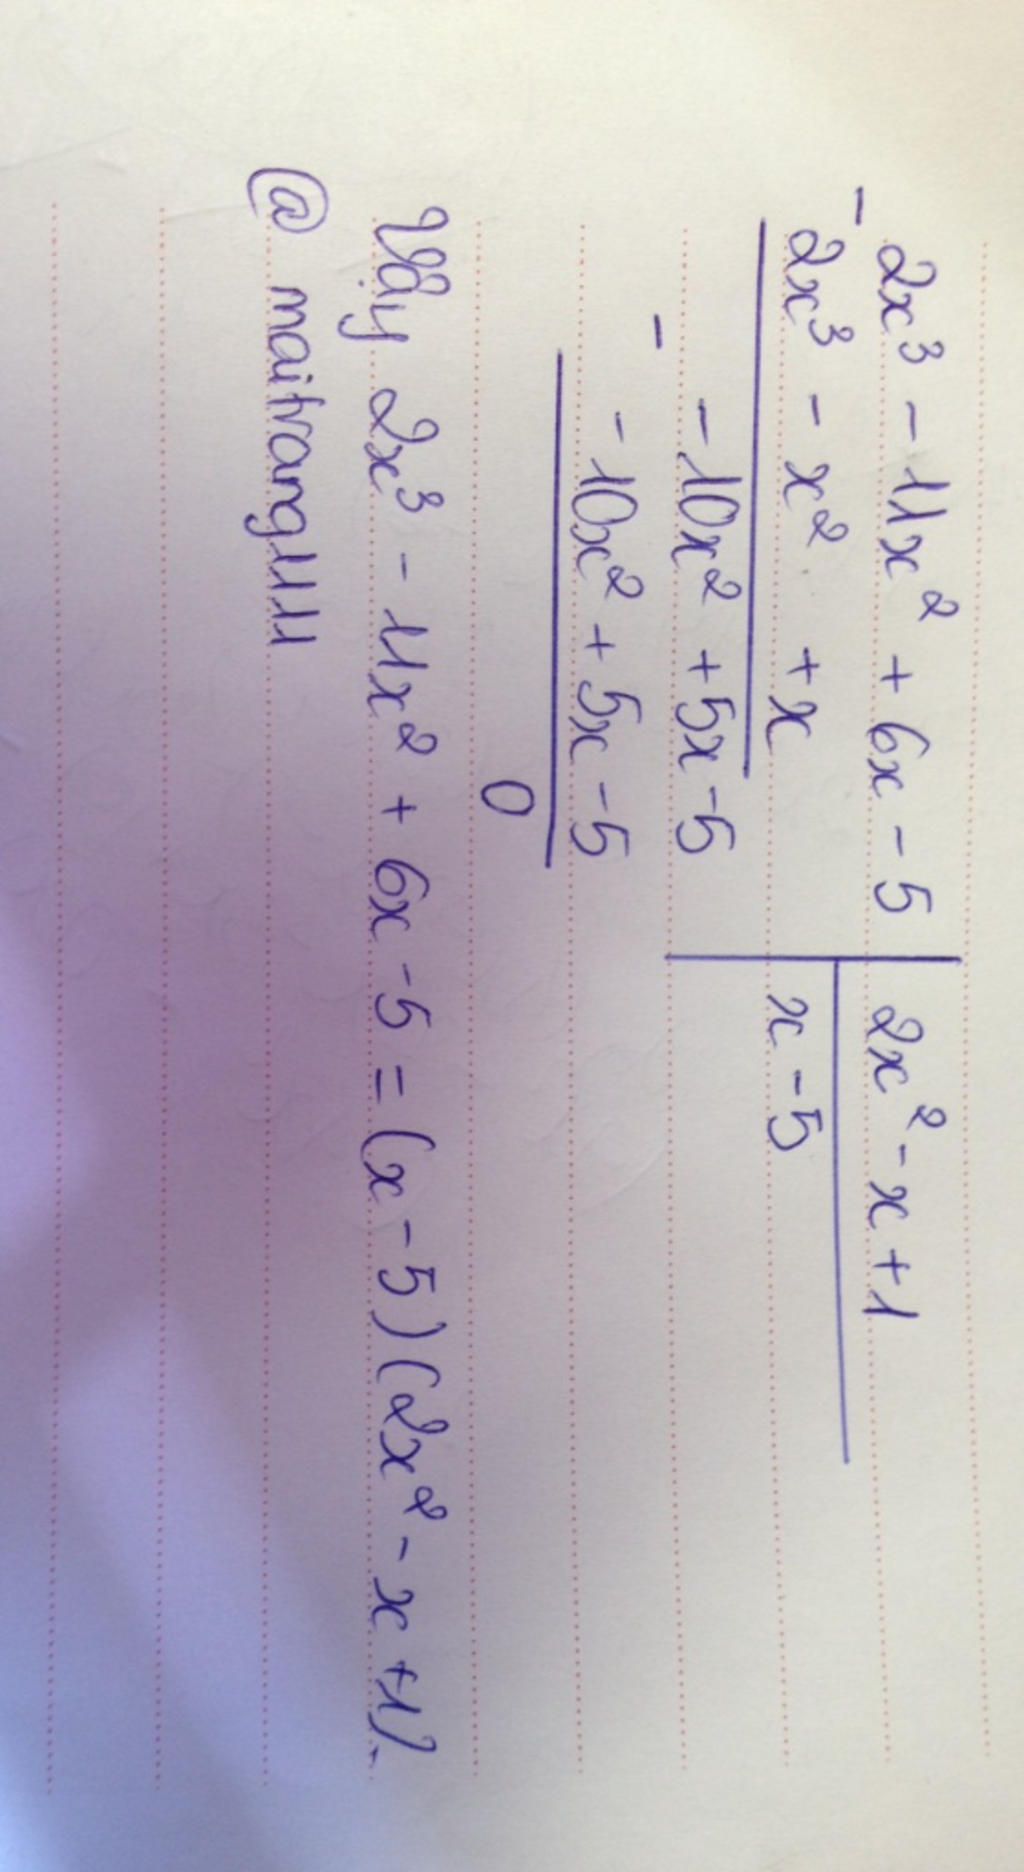 2x³ - 11x² + 6x - 5 | 2x² - x + 1
- 2x³ - x² + x | x - 5
- 10x² + 5x - 5
- - 10x² + 5x - 5
0
Vậy 2x³ - 11x² + 6x - 5 = (x - 5)(2x² - x + 1).
@ maitrang1111